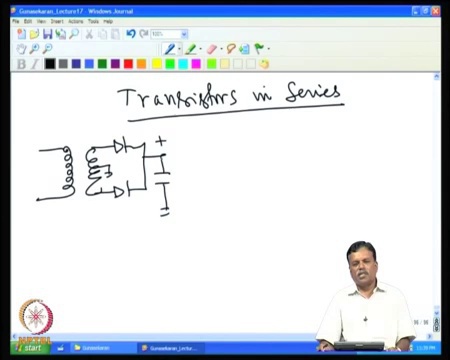 Gunasekaran_Lecture17 - Windows Journal
File Edit View Insert Actions Tools Help
100%
B I
Transistors in Series
+
NPTEL
start
Gunasekaran
Gunasekaran_Lectu...